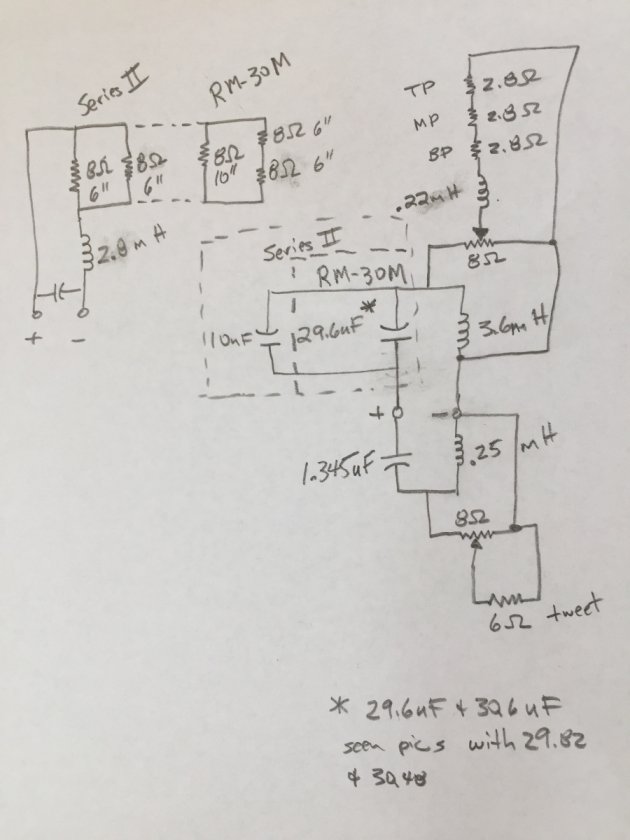 Series II
RM-30M
8Ω
6"
8Ω
6"
8Ω
10"
8Ω 6"
8Ω 6"
2.8 mH
+
-
TP
2.8Ω
MP
2.8Ω
BP
2.8Ω
.22mH
8Ω
Series II
RM-30M
110uF
29.6uF *
3.6mH
+
-
1.345uF
.25 mH
8Ω
6Ω tweet
* 29.6uF & 30.6uF
seen pics with 29.82
& 30.48